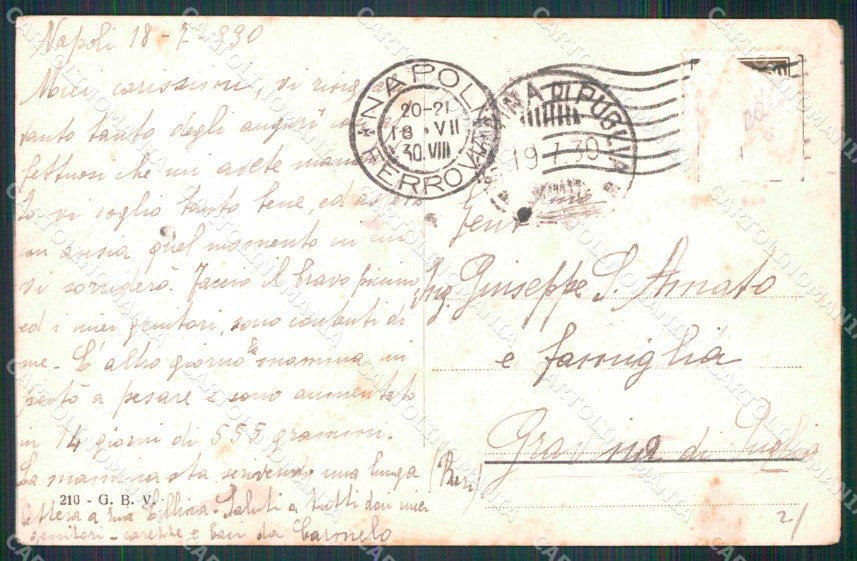 Napoli 18-7-930
Miei carissimi, vi
tanto tanto degli auguri
fettuosi che mi avete
Io vi voglio tanto bene, ed
con ansia quel momento in cui
vi sorriderò. Faccio il bravo
ed i miei genitori, sono contenti di
me. L'altro giorno mamma mi
portò a pesare e sono aumentato
in 14 giorni di 555 grammi.
La mamma sta scrivendo una lunga
lettera a Saluti a tutti dai miei
genitori - carezze e da Carmelo
210 - G. B. V.
NAPOLI
FERROVIA
20-21
18 · VII
30.VIII
DI PUGLIA
19.7.30
Ing. Giuseppe S. Amato
e famiglia
Gravina di Puglia
(Bari)
2/
CARTOLINOMANIA